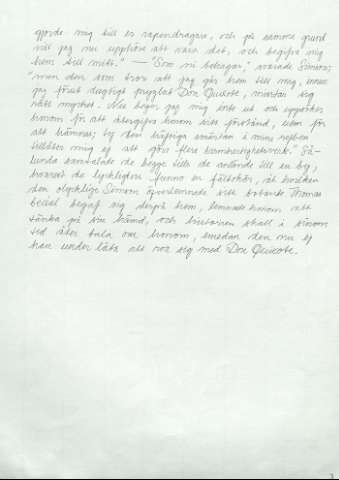 gjorde mig till er vapendragare, och på samma grund
vill jag nu upphöra att vara det, och begifva mig
hem till mitt." — "Som ni behagar," svarade Simson;
"men den som tror att jag går hem till mig, innan
jag först dugtigt pryglat Don Quixote, misstar sig
rätt mycket. Nu beger jag mig inte ut och uppsöker
honom för att återgifva honom sitt förstånd, utan för
att hämnas; ty den häftiga smärtan i mina refben
tillåter mig ej att göra flera barmhertighetsverk." Så-
lunda samtalade de begge tills de anlände till en by,
hvarest de lyckligtvis funno en fältskär, åt hvilken
den olycklige Simson öfverlemnade sitt botande. Thomas
Cecial begaf sig derpå hem, lemnande honom att
tänka på sin hämnd, och historien skall i sinom
tid åter tala om honom, emedan den nu ej
kan underlåta att roa sig med Don Quixote.